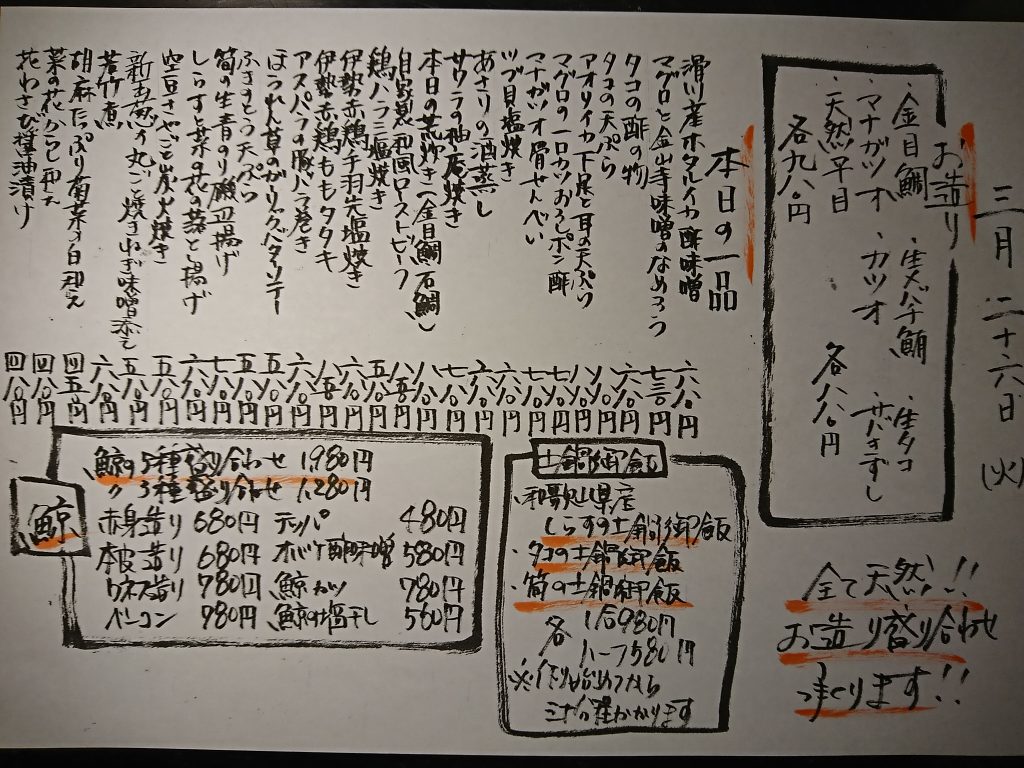 三月二十六日(火)
お造り
・金目鯛 ・生メバチ鮪 ・生タコ
・マナガツオ ・カツオ ・サバきずし
・天然平目 各八八〇円
各九八〇円
全て天然!!
お造り盛り合わせ
つくります!!
本日の一品
滑川産ホタルイカ酢味噌 六八〇円
マグロと金山寺味噌のなめろう 七三〇円
タコの酢の物 六八〇円
タコの天ぷら
アオリイカ下足と耳の天ぷら 八八〇円
マグロの一口カツおろしポン酢 七八〇円
マナガツオ骨せんべい
ツブ貝塩焼き 六八〇円
あさりの酒蒸し
サワラの柚庵焼き 七八〇円
本日の荒炊き(金目鯛、石鯛)
自家製和風ローストビーフ
鶏ハラミ塩焼き 五八〇円
伊勢赤鶏手羽先塩焼き
伊勢赤鶏ももタタキ
アスパラの豚バラ巻き 六八〇円
ほうれん草のガーリックバターソテー 五八〇円
ふきのとう天ぷら 五八〇円
筍の生青のり磯辺揚げ 七八〇円
しらすと菜の花の落とし揚げ 六八〇円
空豆さやごと炭火焼き 五八〇円
新玉葱の丸ごと焼きねぎ味噌添え 五八〇円
若竹煮 六八〇円
胡麻たっぷり菊菜の白和え 四五〇円
菜の花からし和え 四八〇円
花わさび醤油漬け 四八〇円
鯨
鯨の5種盛り合わせ 1,980円
〃 3種盛り合わせ 1,280円
赤身造り 680円 テッパ 480円
本皮造り 680円 オバケ酢味噌 580円
ウネス造り 780円 鯨カツ 780円
ベーコン 980円 鯨の塩干し 560円
土鍋御飯
・和歌山県産
しらすの土鍋御飯
・タコの土鍋御飯
・筍の土鍋御飯
各 1合980円
ハーフ580円
※作り始めてから
三十分程かかります